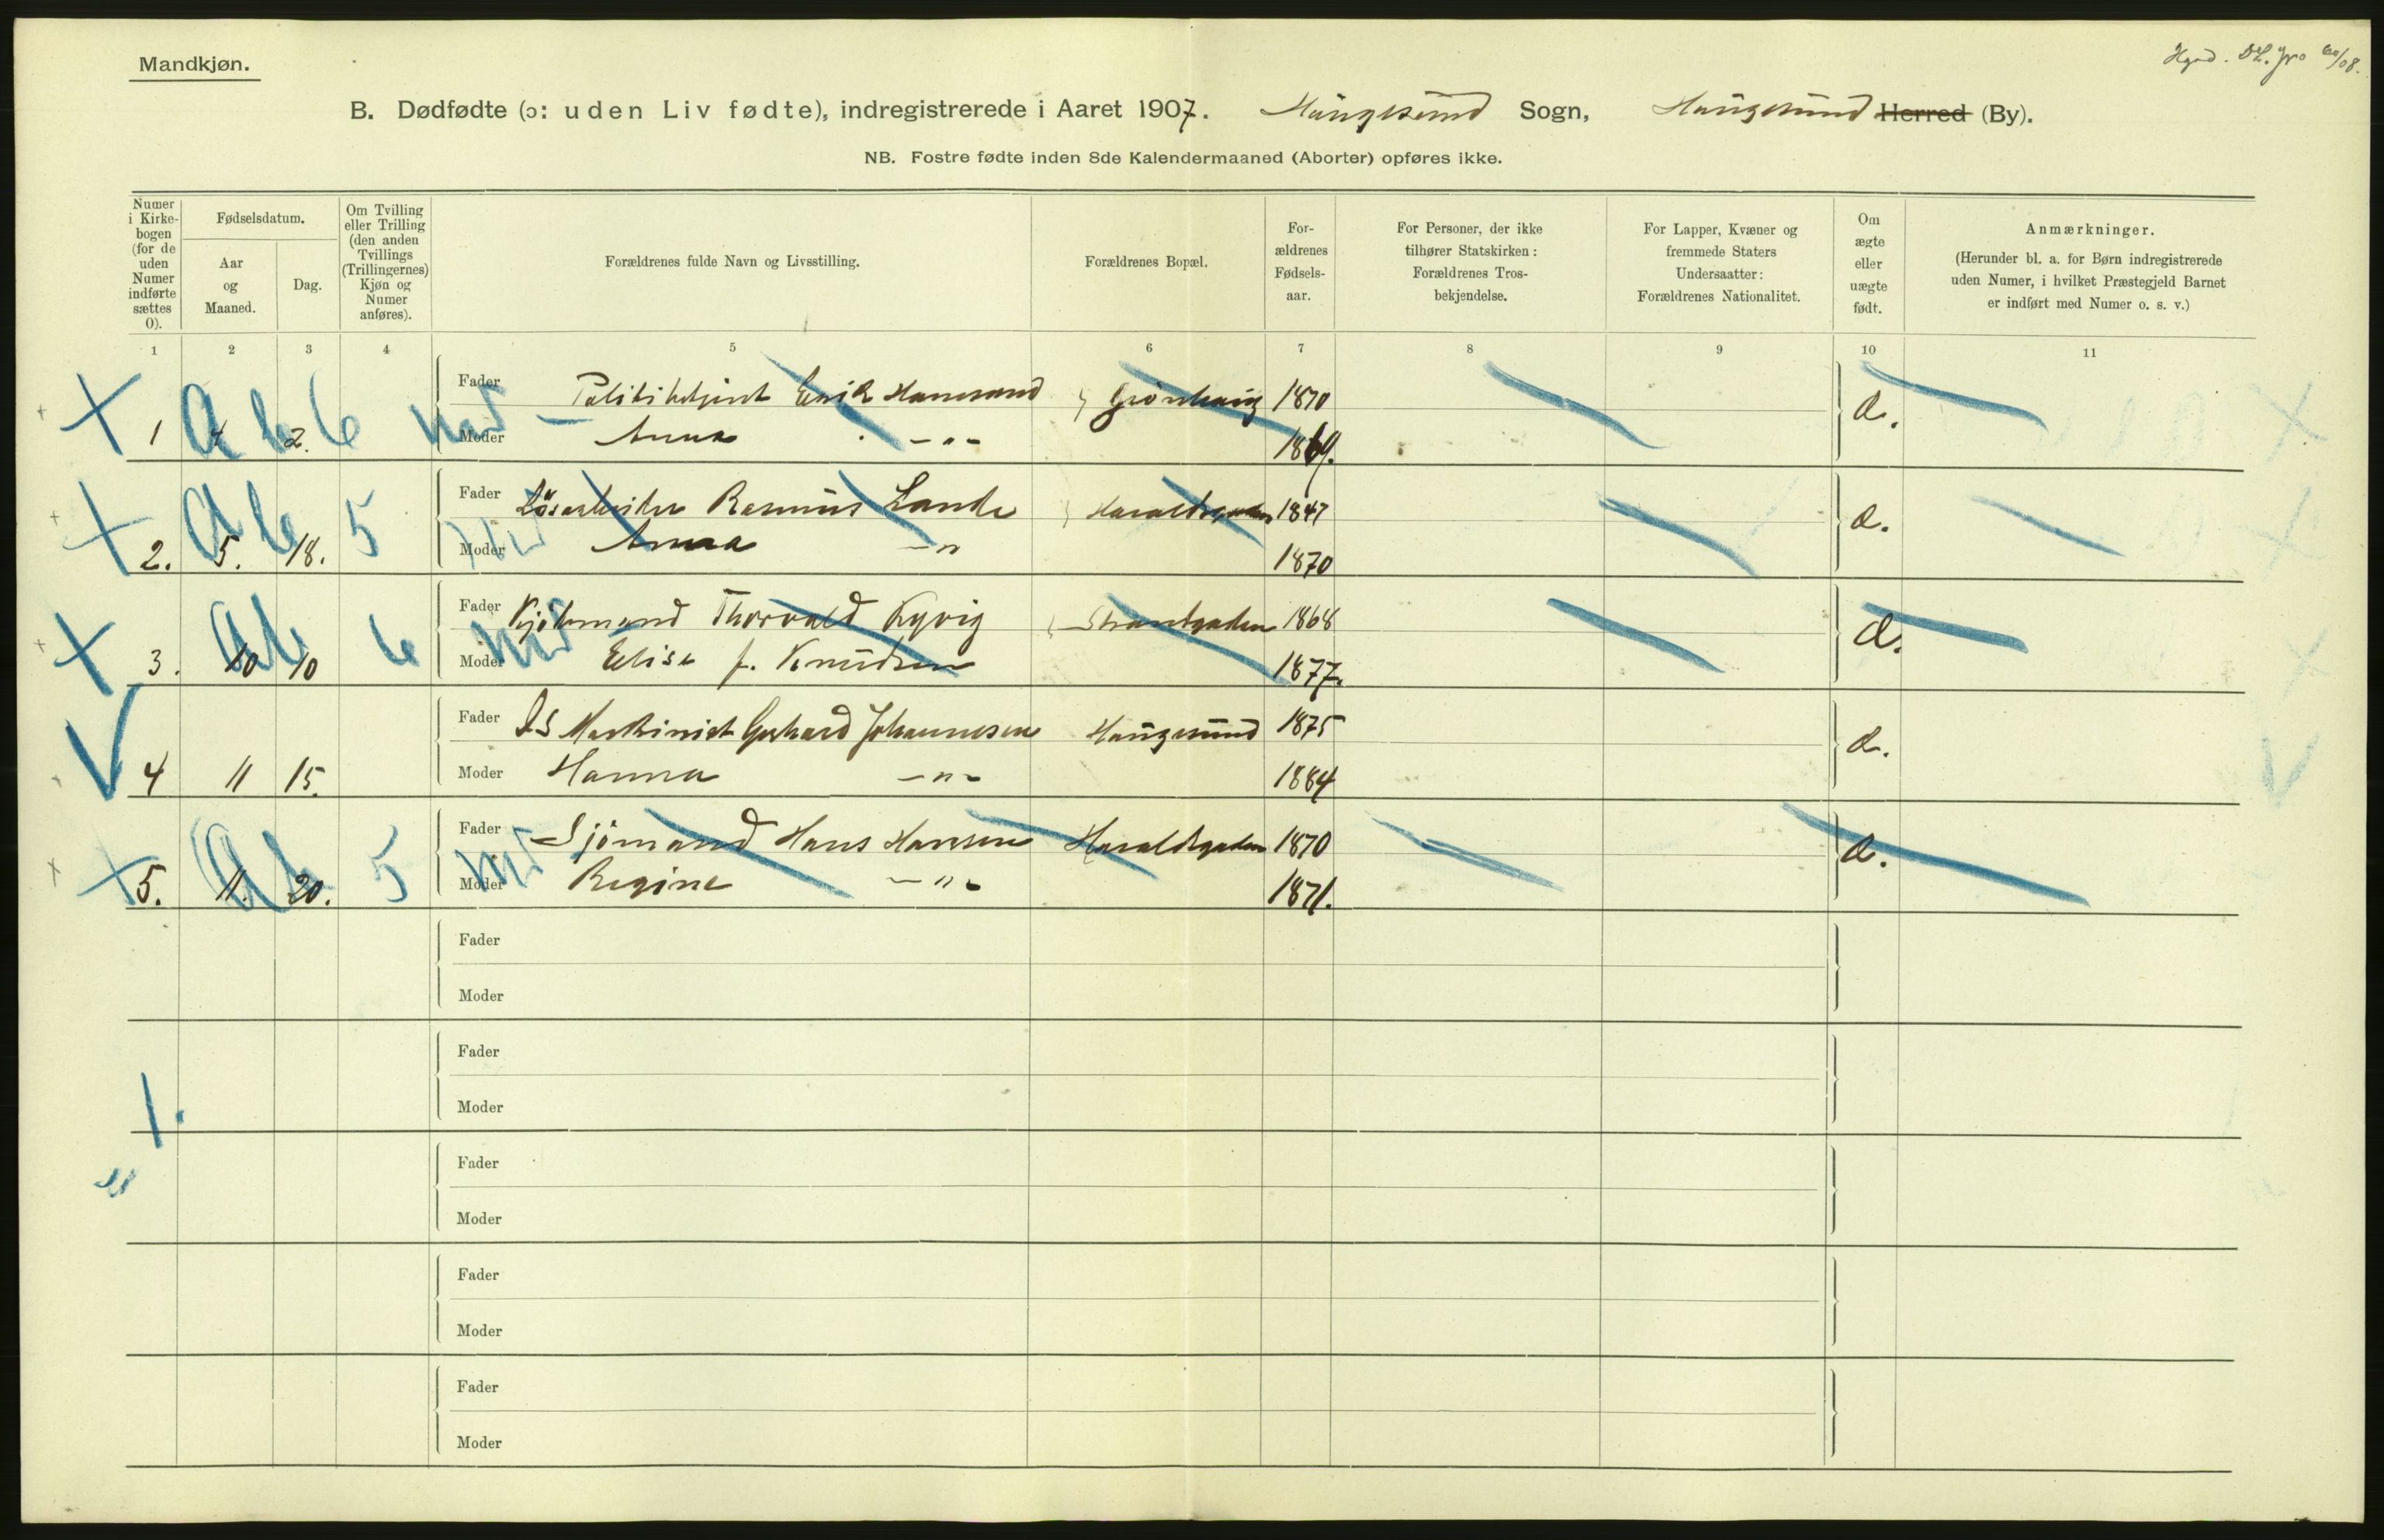 Mandkjøn.
B. Dødfødte (ɔ: uden Liv fødte), indregistrerede i Aaret 1907. Haugesund Sogn, Haugesund Herred (By).
NB. Fostre fødte inden 8de Kalendermaaned (Aborter) opføres ikke.
Numer i Kirkebogen (for de uden Numer indførte sættes 0).
Fødselsdatum.
Aar og Maaned.
Dag.
Om Tvilling eller Trilling (den anden Tvillings (Trillingernes) Kjøn og Numer anføres).
Forældrenes fulde Navn og Livsstilling.
Forældrenes Bopæl.
Forældrenes Fødselsaar.
For Personer, der ikke tilhører Statskirken: Forældrenes Trosbekjendelse.
For Lapper, Kvæner og fremmede Staters Undersaatter: Forældrenes Nationalitet.
Om ægte eller uægte født.
Anmærkninger.
(Herunder bl. a. for Børn indregistrerede uden Numer, i hvilket Præstegjeld Barnet er indført med Numer o. s. v.)
1 2 3 4 5 6 7 8 9 10 11
Fader Politibetjent Erik Hamrand Grønhaug 1870
1 4 2. 6 Moder Anna -"- 1869.
Fader Løsarbeider Rasmus Lande Haraldsgaden 1847
2. 5. 18. 5 Moder Anna -"- 1870
Fader Kjøbmand Thorvald Kyvig Strandgaden 1868
3. 10 10 6 Moder Elise f. Knudsen 1877.
Fader DS Maskinist Gerhard Johannesen Haugesund 1875
4 11 15. Moder Hanna -"- 1884
Fader Sjømand Hans Hansen Haraldsgaden 1870
5. 11. 20. 5 Moder Regine -"- 1871.
Fader
Moder
Fader
Moder
1.
Fader
Moder
Fader
Moder
Fader
Moder